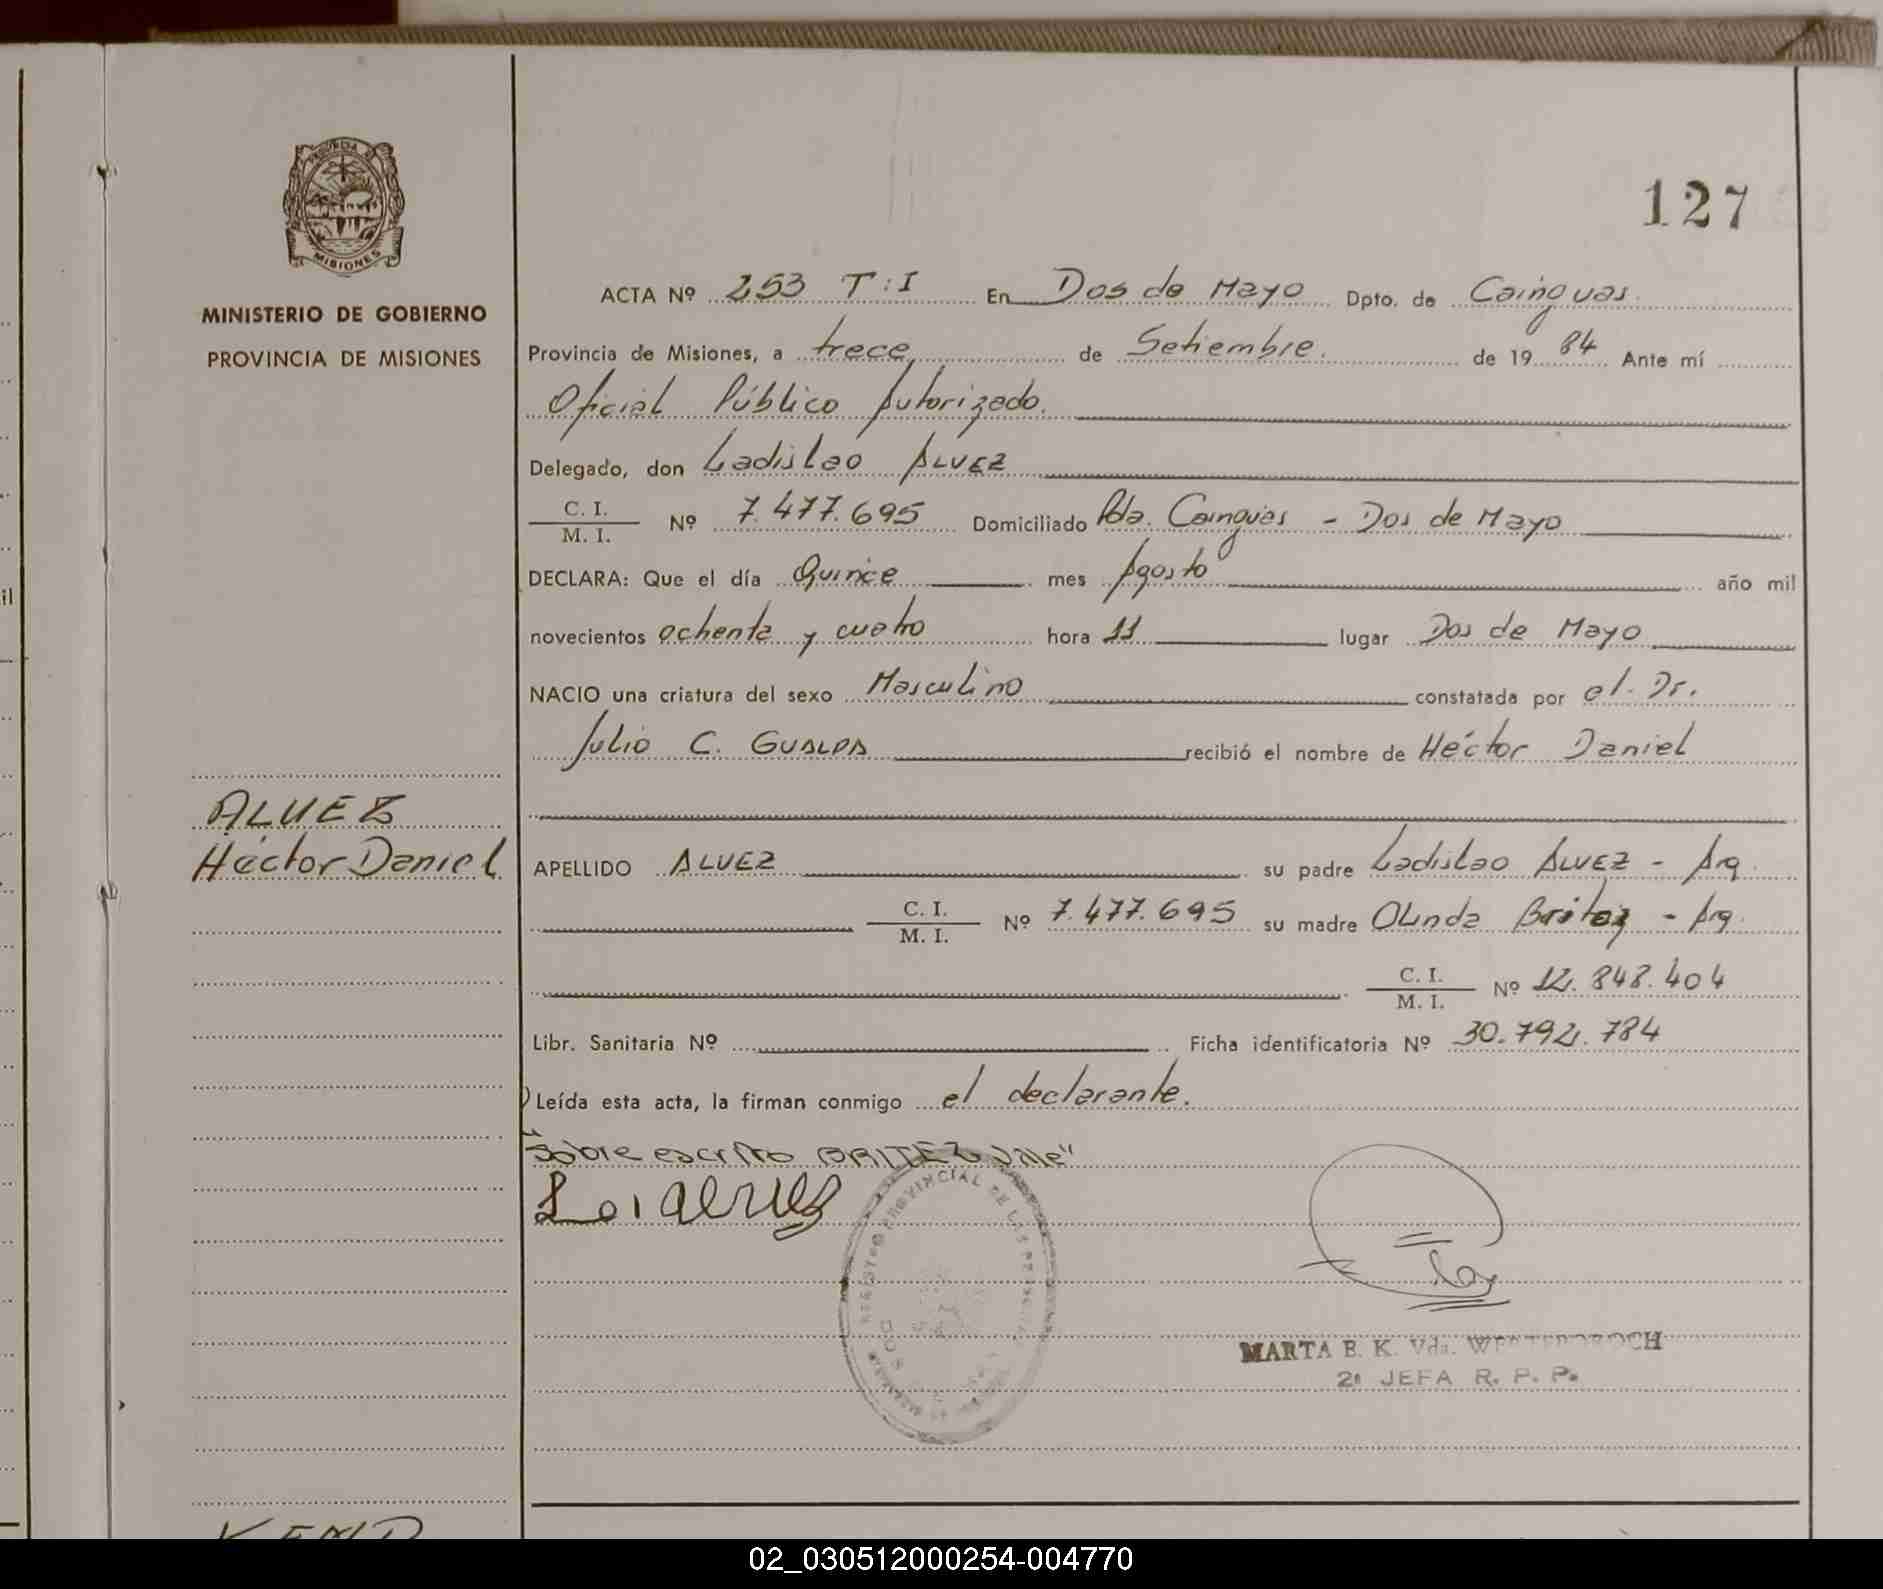 127
PROVINCIA DE
MISIONES
MINISTERIO DE GOBIERNO
PROVINCIA DE MISIONES
ACTA Nº 253 T:I En Dos de Mayo Dpto. de Cainguas.
Provincia de Misiones, a trece, de Setiembre. de 19 84 Ante mí
Oficial Público Autorizado.
Delegado, don Ladislao ALVEZ
C. I.
M. I.
Nº 7.477.695 Domiciliado Pda. Cainguas - Dos de Mayo
DECLARA: Que el día Quince mes Agosto año mil
novecientos ochenta y cuatro hora 11 lugar Dos de Mayo
NACIO una criatura del sexo Masculino constatada por el. Dr.
Julio C. GUALDA recibió el nombre de Héctor Daniel
ALVEZ
Héctor Daniel
APELLIDO ALVEZ su padre Ladislao ALVEZ - Arg.
C. I.
M. I.
Nº 7.477.695 su madre OLinda Britez - Arg.
C. I.
M. I.
Nº 12.848.404
Libr. Sanitaria Nº Ficha identificatoria Nº 30.792.784
Leída esta acta, la firman conmigo el declarante.
"Sobre escrito BRITEZ Vale"
REGISTRO PROVINCIAL DE LAS PERSONAS
DOS
MARTA E. K. Vda.
2ª JEFA R. P. P.
02_030512000254-004770